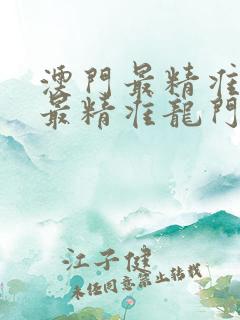 澳門最精准
最精准龍門
江子健
未经同意禁止转载